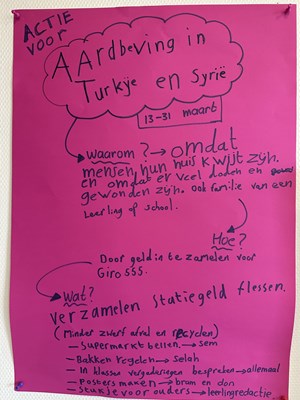 ACTIE
VOOR
AArdbeving in
Turkje en Syrië
13-31 maart
Waarom? → omdat
mensen hun huis kwijt zijn.
en omdat er veel doden en
gewonden zijn. ook familie van een
Leerling of school.
Hoe?
Door geld in te zamelen voor
Giro 555.
Wat?
verzamelen statiegeld flessen.
(Minder zwerf afval en recyclen)
- Supermarkt bellen → sem
- Bakken regelen → selah
- In klassen vergaderingen bespreken → allemaal
- posters maken → brum en don
- stukje voor ouders → leerlingredactie